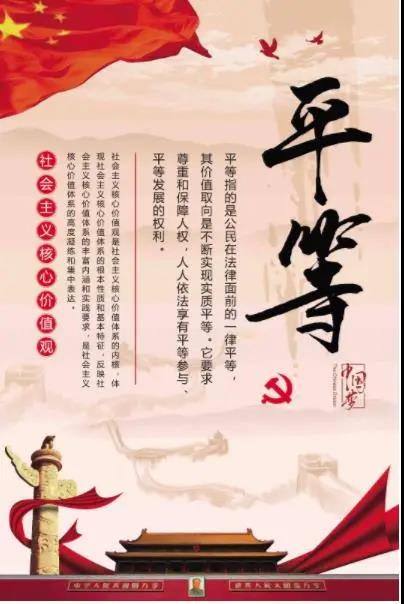 平等
中国梦
The Chinese Dream
平等指的是公民在法律面前的一律平等，
其价值取向是不断实现实质平等。它要求
尊重和保障人权，人人依法享有平等参与、
平等发展的权利。
社会主义核心价值观是社会主义核心价值体系的内核，体
现社会主义核心价值体系的根本性质和基本特征，反映社
会主义核心价值体系的丰富内涵和实践要求，是社会主义
核心价值体系的高度凝练和集中表达。
社会主义核心价值观
中华人民共和国万岁
世界人民大团结万岁